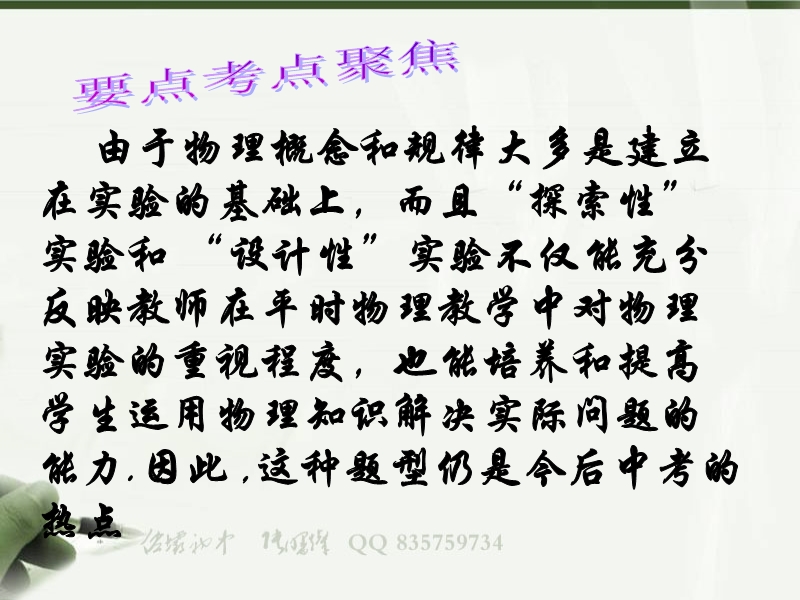 要点考点聚焦
由于物理概念和规律大多是建立
在实验的基础上，而且“探索性”
实验和“设计性”实验不仅能充分
反映教师在平时物理教学中对物理
实验的重视程度，也能培养和提高
学生运用物理知识解决实际问题的
能力.因此,这种题型仍是今后中考的
热点
QQ 835759734